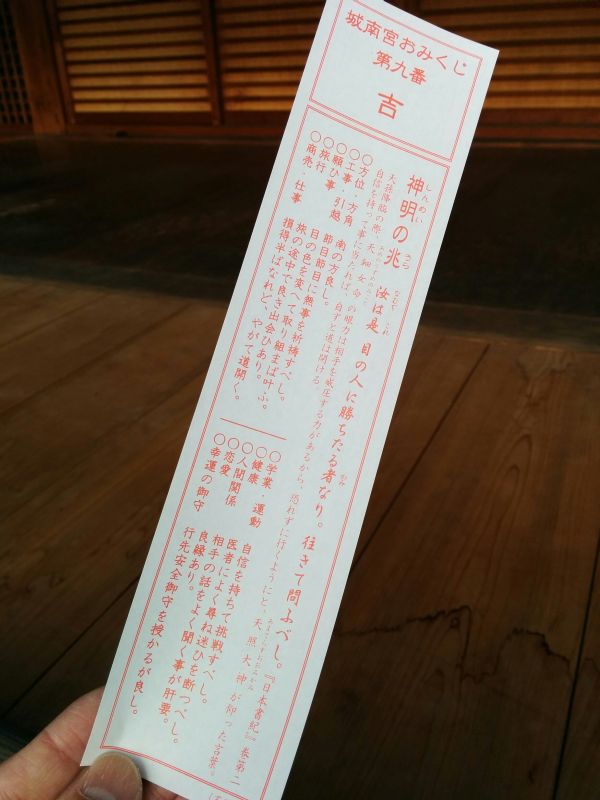 城南宮おみくじ
第九番
吉
神明の兆 汝は是 目の人に勝ちたる者なり。往きて問ふべし。『日本書紀』巻第二
天孫降臨の際、天鈿女命の眼力は相手を威圧する力があるから、恐れずに行くようにと、天照大神が仰った言葉。
の自信を持って事に当たれば、自ずと道は開ける。
○方位・方角 南の方良し。
○工事・引越 節目節目に無事を祈祷すべし。
○願ひ事 目の色を変へて取り組まば叶ふ。
○旅行 旅の途中で良き出会ひあり。
○商売・仕事 損得半ばなれど、やがて道開く。
○学業 自信を持ちて挑戦すべし。
○健康・運動 医者によく尋ね迷ひを断つべし。
○人間関係 相手の話をよく聞く事が肝要。
○恋愛 良縁あり。
○幸運の御守 行先安全御守を授かるが良し。